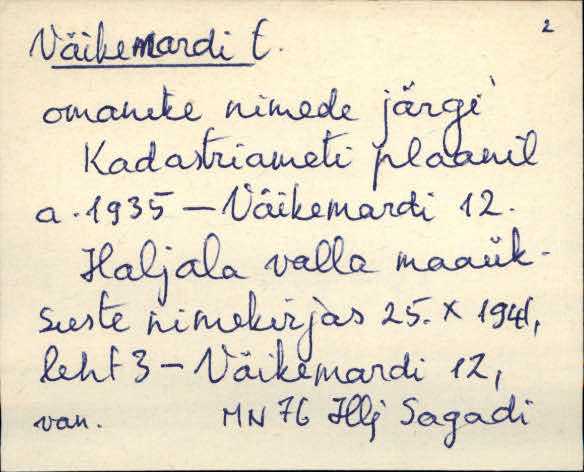 2
Väikemardi t.
omanike nimede järgi
Kadastriameti plaanil
a. 1935 – Väikemardi 12.
Haljala valla maaük-
suste nimekirjas 25. X 1941,
leht 3 – Väikemardi 12,
van. MN 76 Hlj Sagadi